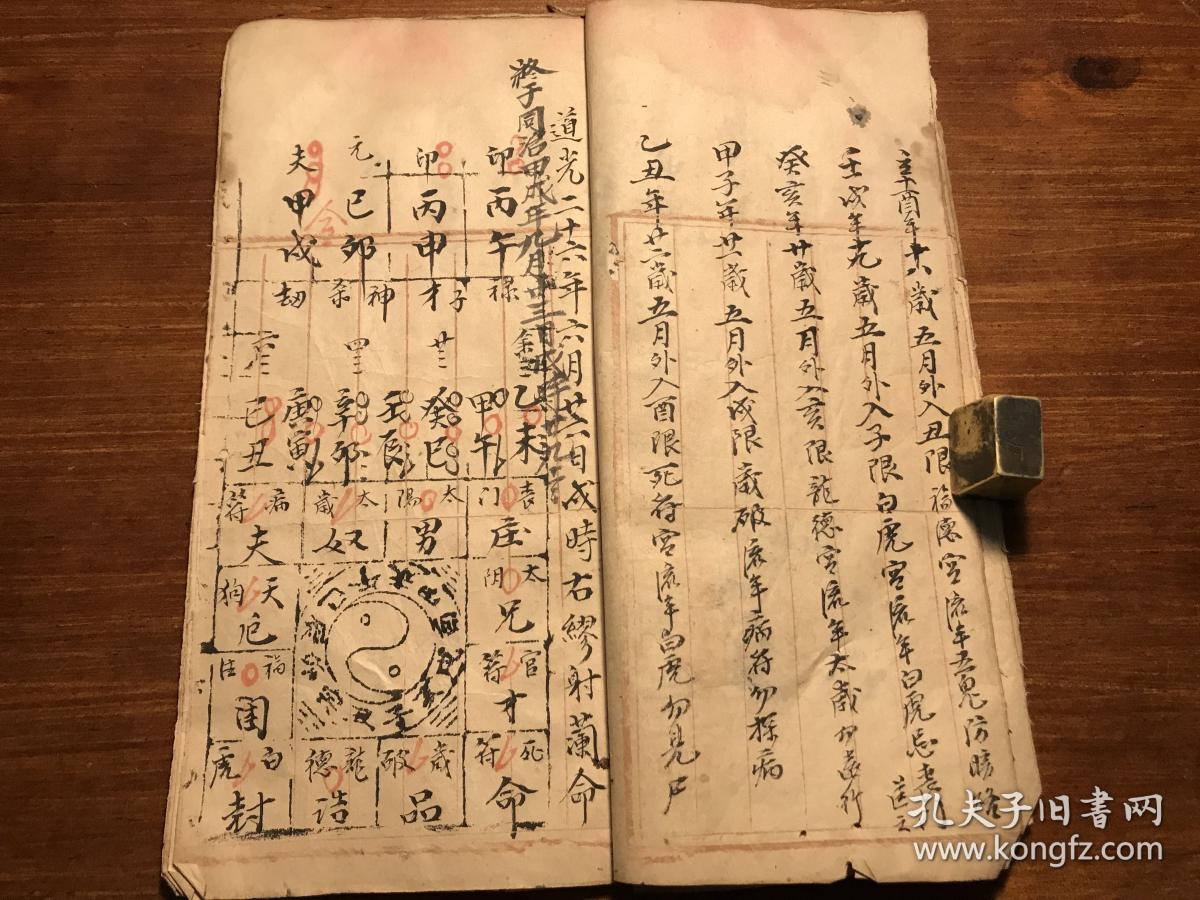 辛酉年十八歲五月外入丑限福德宮流年五鬼防暗
壬戌年十九歲五月外入子限白虎宮流年白虎忌喪
癸亥年廿歲五月外入亥限龍德宮流年太歲勿遠行
甲子年廿一歲五月外入戌限歲破流年病符勿探病
乙丑年廿二歲五月外入酉限死符宮流年白虎勿見尸
道光二十六年六月廿六日戌時右繆射蘭命
終于同治甲戌年九月廿三日
印 印 元 夫
丙午 丙申 己卯 甲戌
祿 子才 神杀 劫
廿三 四三
乙未 甲午 癸巳 壬辰 辛卯 庚寅 己丑
喪門 太陽 太歲 病符
庄 男 奴 夫
太阴 天狗
兄 厄
官符 福德
才 困
死符 歲破 龍德 白虎
命 品 诰 封
孔夫子旧书网
www.kongfz.com